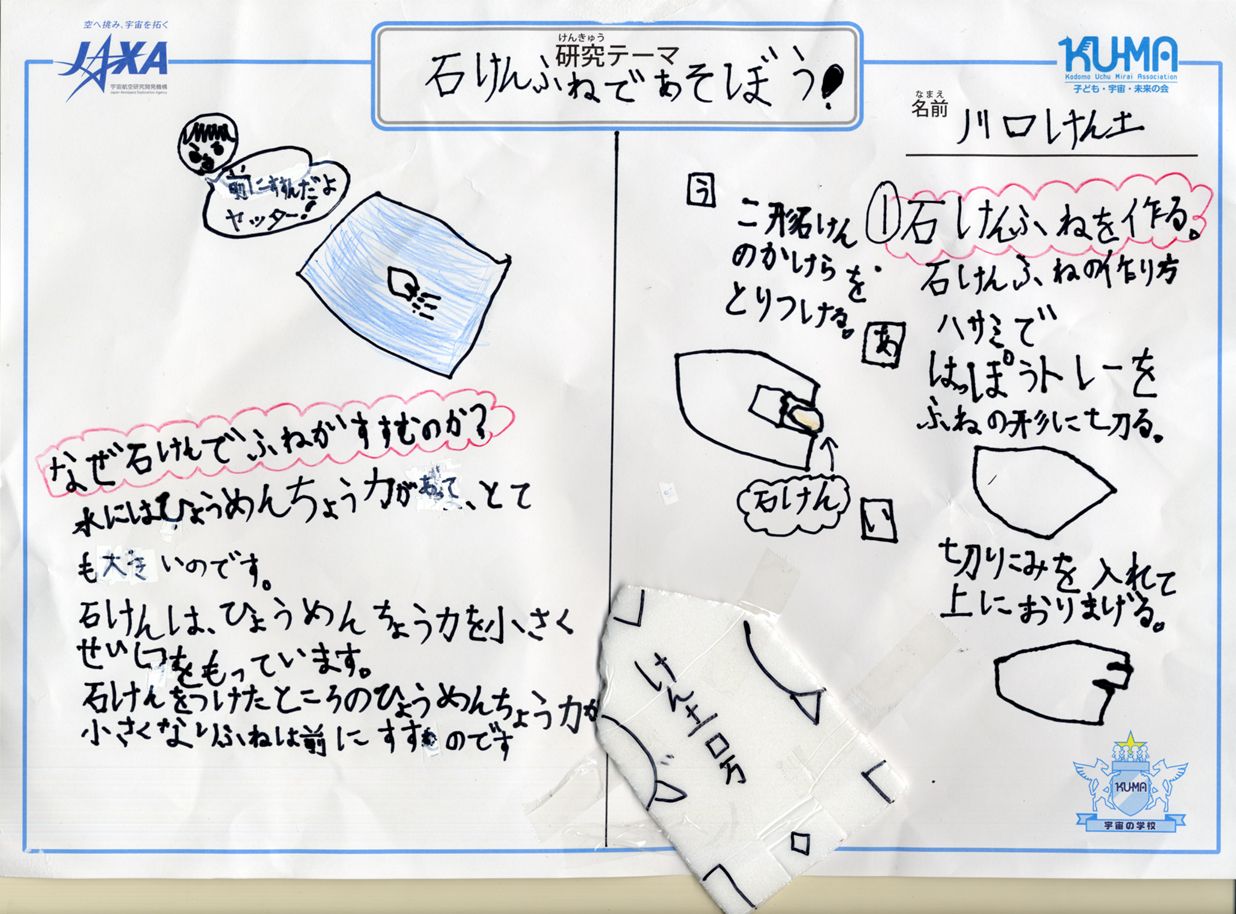 空へ挑み、宇宙を拓く
JAXA
宇宙航空研究開発機構
Japan Aerospace Exploration Agency
けんきゅう
研究テーマ
石けんふねであそぼう!
KU-MA
Kodomo Uchu Mirai Association
子ども・宇宙・未来の会
なまえ
名前
川口けん土
①石けんふねを作る。
石けんふねの作り方
あ
ハサミで
はっぽうトレーを
ふねの形に切る。
い
切りこみを入れて
上におりまげる。
う
二形石けん
のかけらを
とりつける。
石けん
けん土号
前にすすんだよ
ヤッター!
なぜ石けんでふねがすすむのか?
水にはひょうめんちょう力があって、とて
も大きいのです。
石けんは、ひょうめんちょう力を小さく
せいしつをもっています。
石けんをつけたところのひょうめんちょう力が
小さくなりふねは前にすすむのです
KU-MA
宇宙の学校